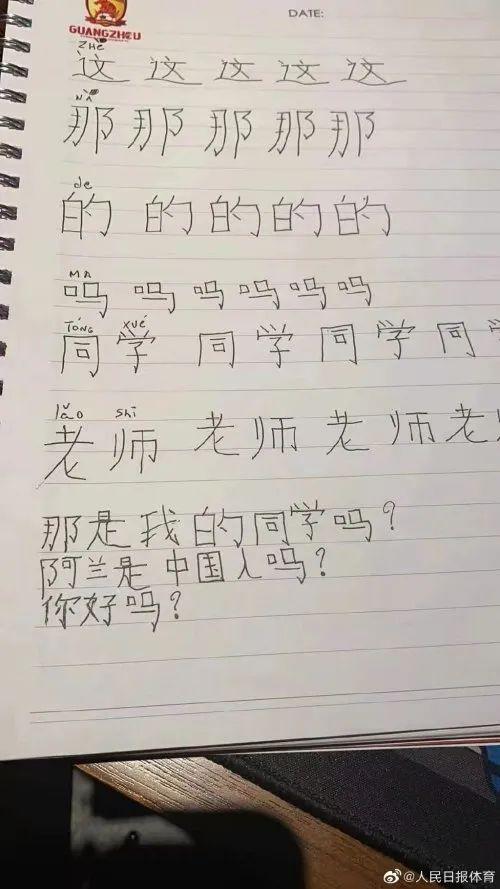 GUANGZHOU
DATE:
ZHÈ
这 这 这 这 这
NÀ
那 那 那 那 那
de
的 的 的 的 的
MA
吗 吗 吗 吗 吗
TÓNG XUÉ
同 学 同 学 同 学 同 学
lǎo shī
老 师 老 师 老 师 老
那是我的同学吗?
阿兰是中国人吗?
你好吗?
@人民日报体育